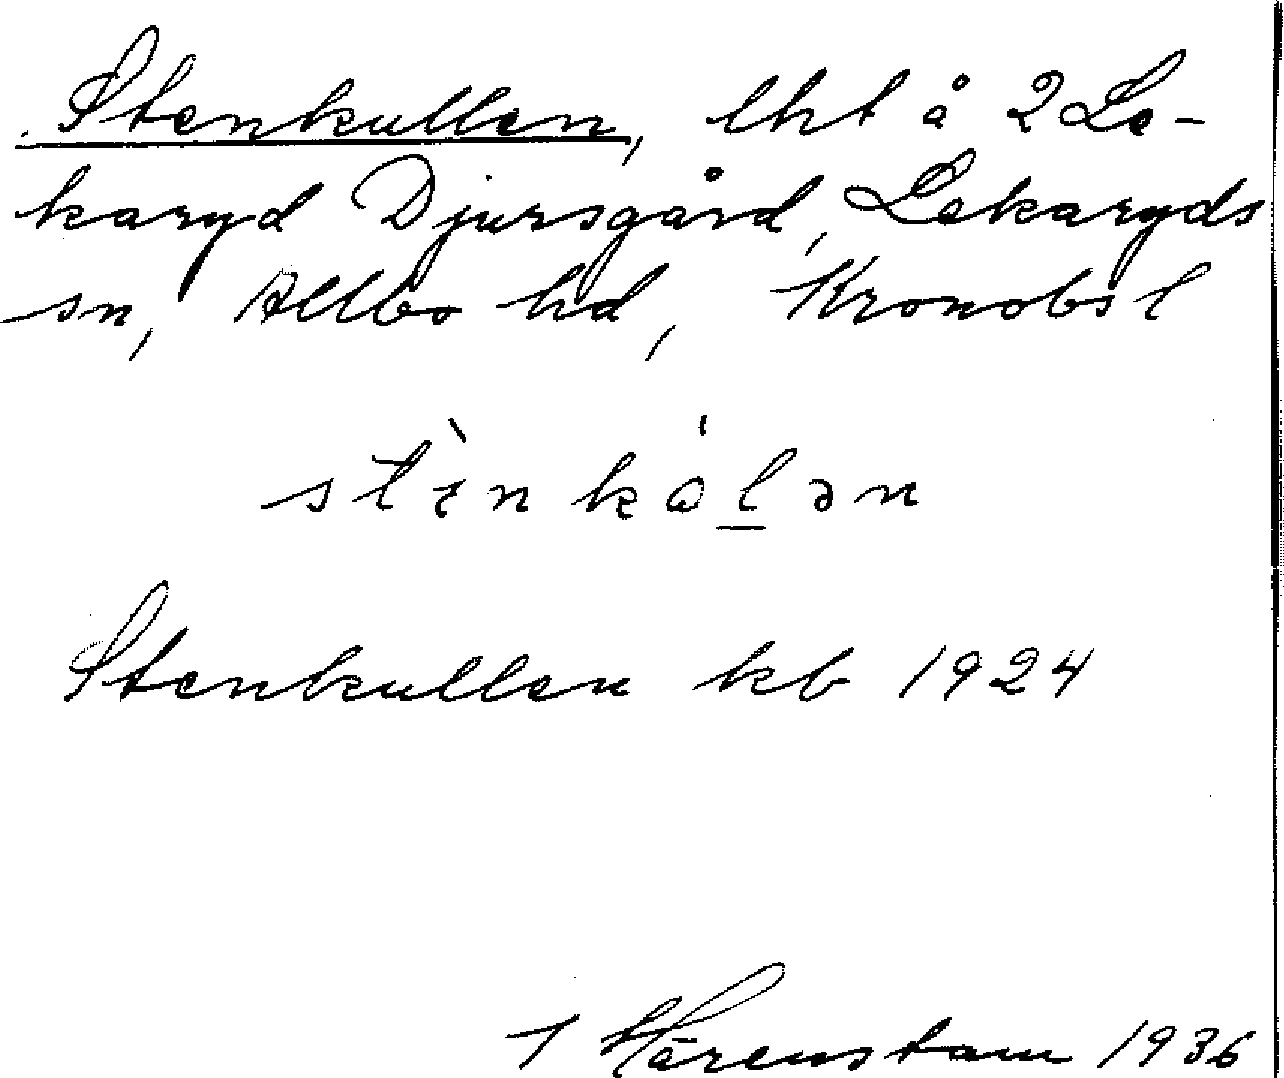 Stenkullen, lht å 2 Le-
karyd Djursgård, Lekaryds
sn, Allbo hd, Kronobs l
stὲnkȯ́l̲ən
Stenkullen kb 1924
Härenstam 1936